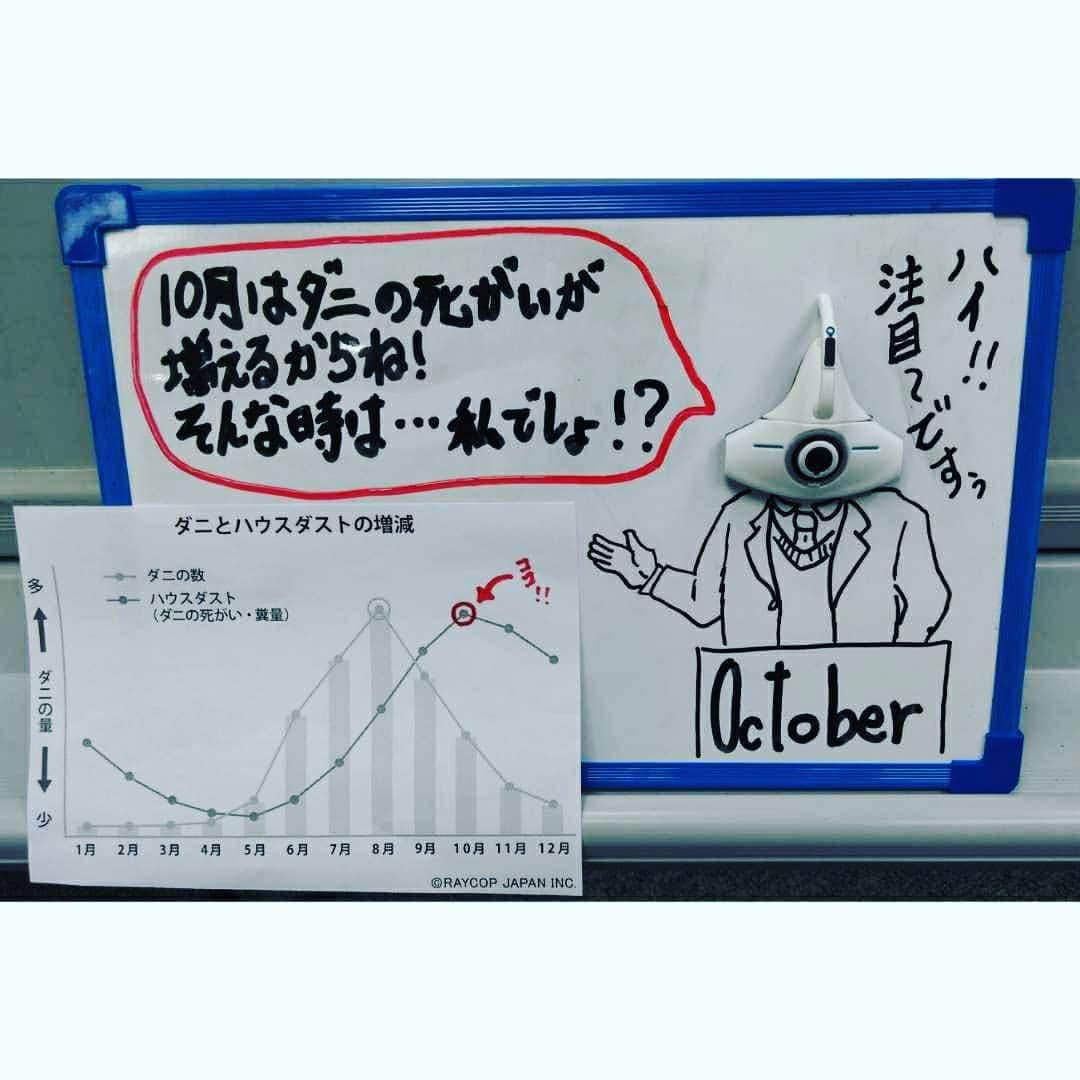 10月はダニの死がいが
増えるからね!
そんな時は…私でしょ!?
ハイ!!
注目てですぅ
October
ダニとハウスダストの増減
ダニの数
ハウスダスト
(ダニの死がい・糞量)
ココ!!
多
ダニの量
少
1月 2月 3月 4月 5月 6月 7月 8月 9月 10月 11月 12月
©RAYCOP JAPAN INC.